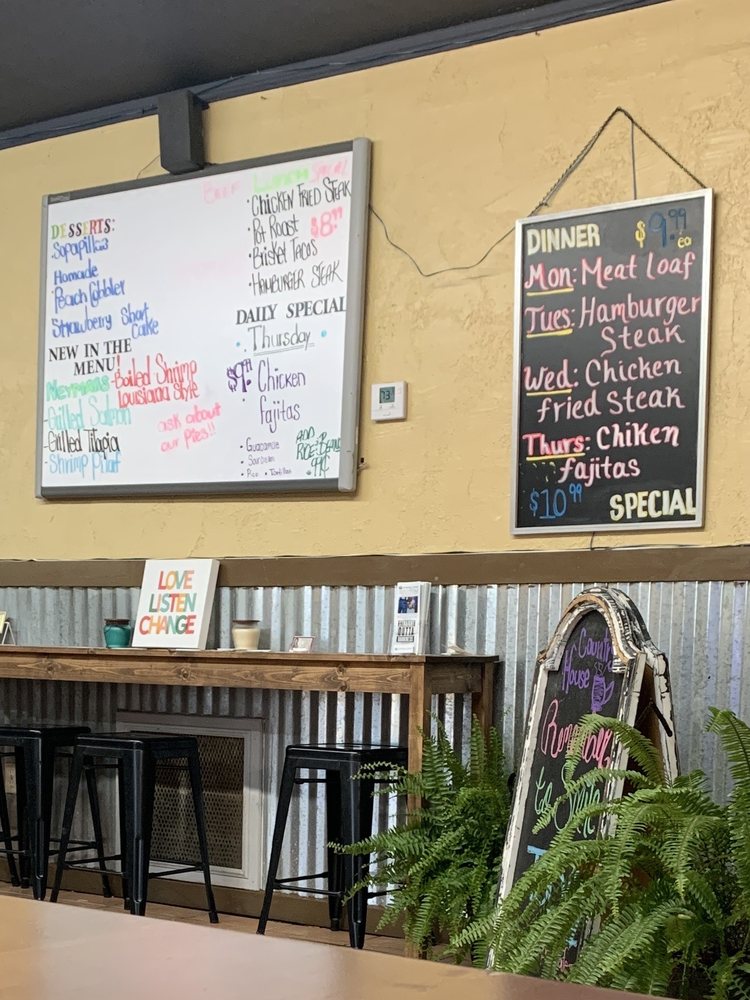 DESSERTS:
• Sopapillas
Homade
• Peach Cobbler
Strawberry Short
Cake
NEW IN THE
MENU!
Boiled Shrimp
Louisiana Style
Grilled Salmon
• Grilled Tilapia
Shrimp
ask about
our Pies!!
BEEF LUNCH SPECIAL
• Chicken Fried Steak
• Pot Roast $8.99
• Brisket Tacos
• Hamburger Steak
DAILY SPECIAL
• Thursday •
$9.99 Chicken
fajitas
• Guacamole
• Sour Cream
• Pico • Tortillas
ADD
RICE & BEANS
99¢
73
DINNER $9.99 ea
Mon: Meat Loaf
Tues: Hamburger
Steak
Wed: Chicken
fried Steak
Thurs: Chiken
fajitas
$10.99 SPECIAL
LOVE
LISTEN
CHANGE
OUTTA
Country
House